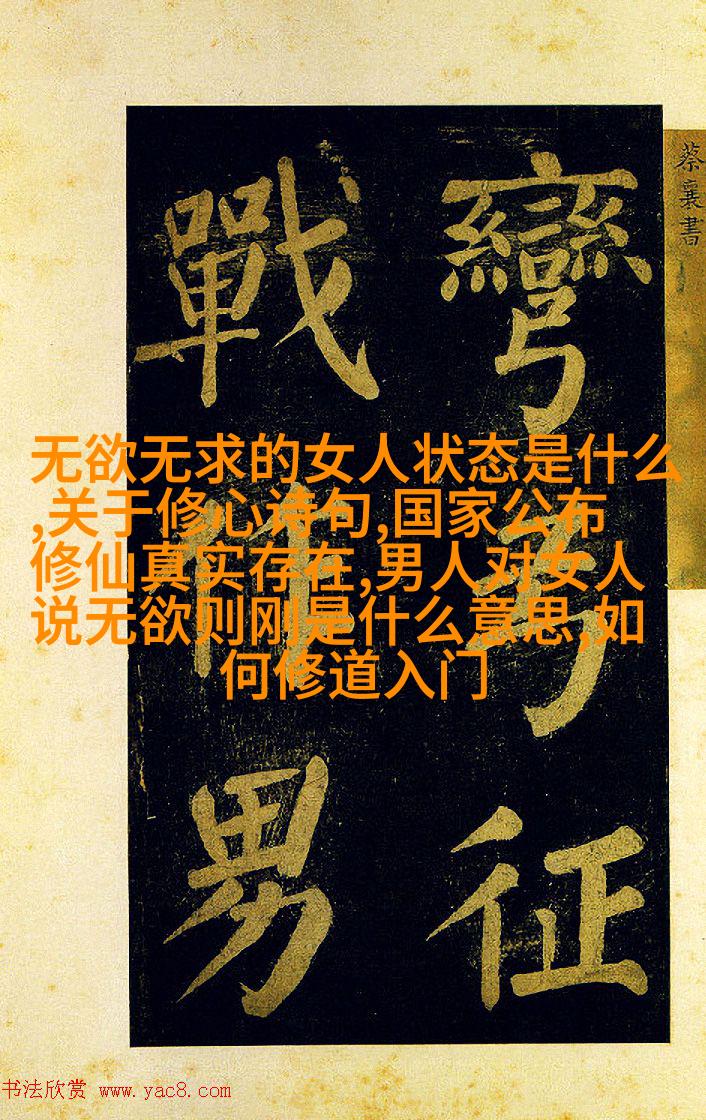 蔡襄書
彎弓征
戰作男
无欲无求的女人状态是什么
,关于修心诗句,国家公布
修仙真实存在,男人对女人
说无欲则刚是什么意思,如
何修道入门
书法欣赏 www.yac8.com